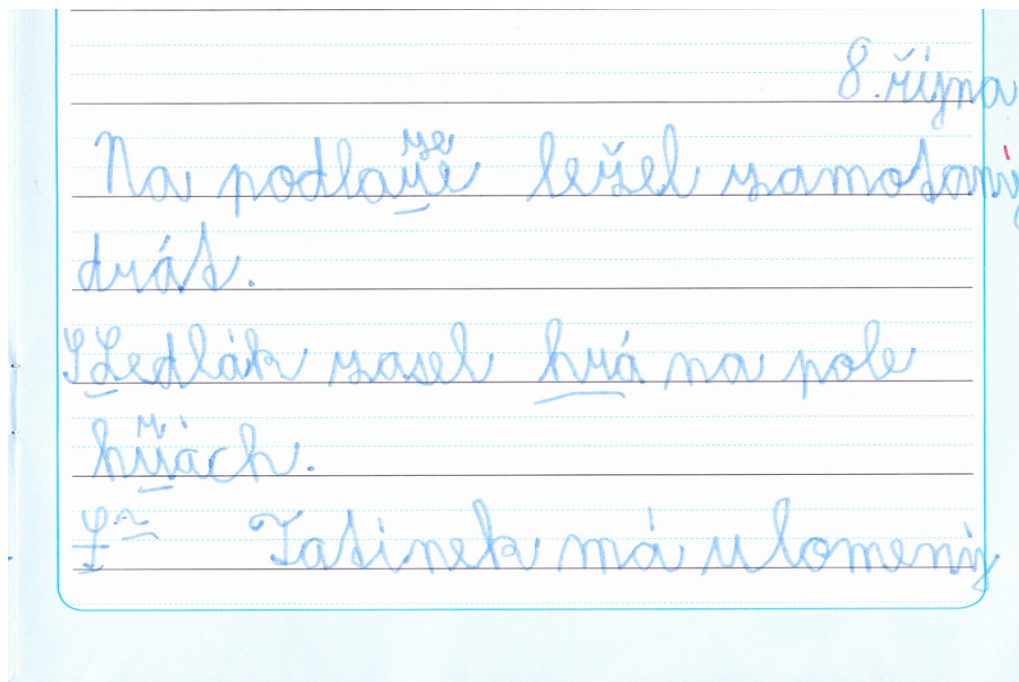 8. října
Na podlaze ležel zamotaný
drát.
Sedlák zasel hrá na pole
hrách.
Tatínek má ulomený